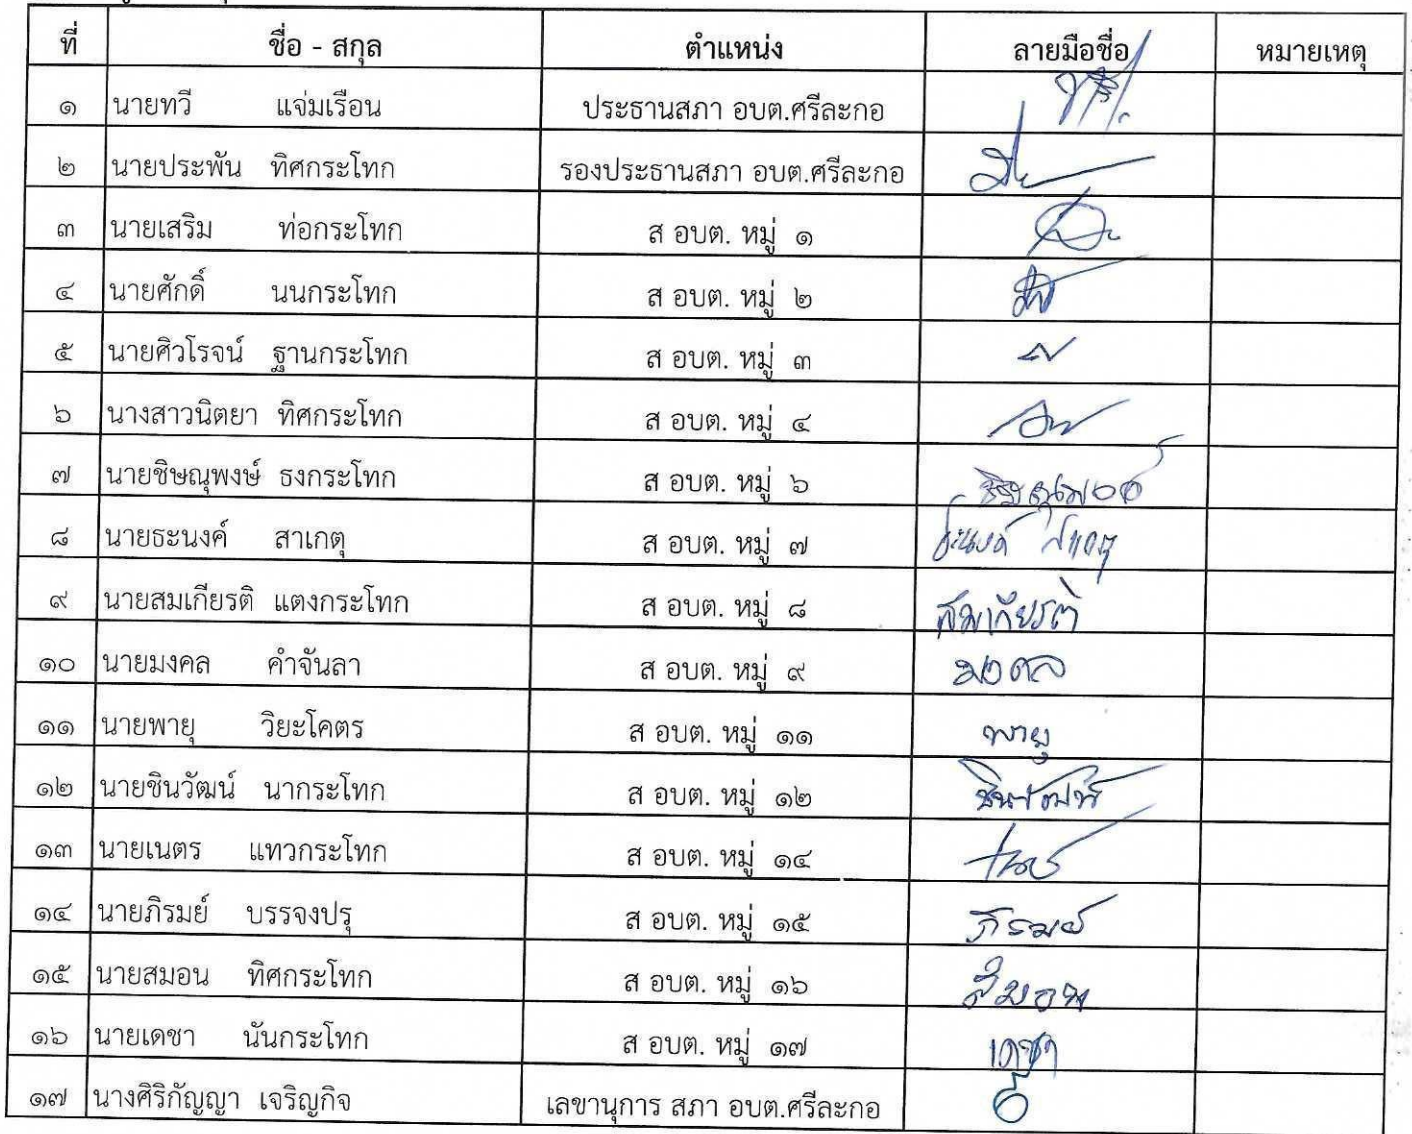 ที่ ชื่อ - สกุล ตำแหน่ง ลายมือชื่อ หมายเหตุ
๑ นายทวี แจ่มเรือน ประธานสภา อบต.ศรีละกอ
๒ นายประพัน ทิศกระโทก รองประธานสภา อบต.ศรีละกอ
๓ นายเสริม ท่อกระโทก ส อบต. หมู่ ๑
๔ นายศักดิ์ นนกระโทก ส อบต. หมู่ ๒
๕ นายศิวโรจน์ ฐานกระโทก ส อบต. หมู่ ๓
๖ นางสาวนิตยา ทิศกระโทก ส อบต. หมู่ ๔
๗ นายชิษณุพงษ์ ธงกระโทก ส อบต. หมู่ ๖
๘ นายธะนงค์ สาเกตุ ส อบต. หมู่ ๗ ธะนงค์ สาเกตุ
๙ นายสมเกียรติ แตงกระโทก ส อบต. หมู่ ๘ สมเกียรติ
๑๐ นายมงคล คำจันลา ส อบต. หมู่ ๙ มงคล
๑๑ นายพายุ วิยะโคตร ส อบต. หมู่ ๑๑ พายุ
๑๒ นายชินวัฒน์ นากระโทก ส อบต. หมู่ ๑๒ ชินวัฒน์
๑๓ นายเนตร แทวกระโทก ส อบต. หมู่ ๑๔
๑๔ นายภิรมย์ บรรจงปรุ ส อบต. หมู่ ๑๕ ภิรมย์
๑๕ นายสมอน ทิศกระโทก ส อบต. หมู่ ๑๖ สมอน
๑๖ นายเดชา นันกระโทก ส อบต. หมู่ ๑๗ เดชา
๑๗ นางศิริกัญญา เจริญกิจ เลขานุการ สภา อบต.ศรีละกอ